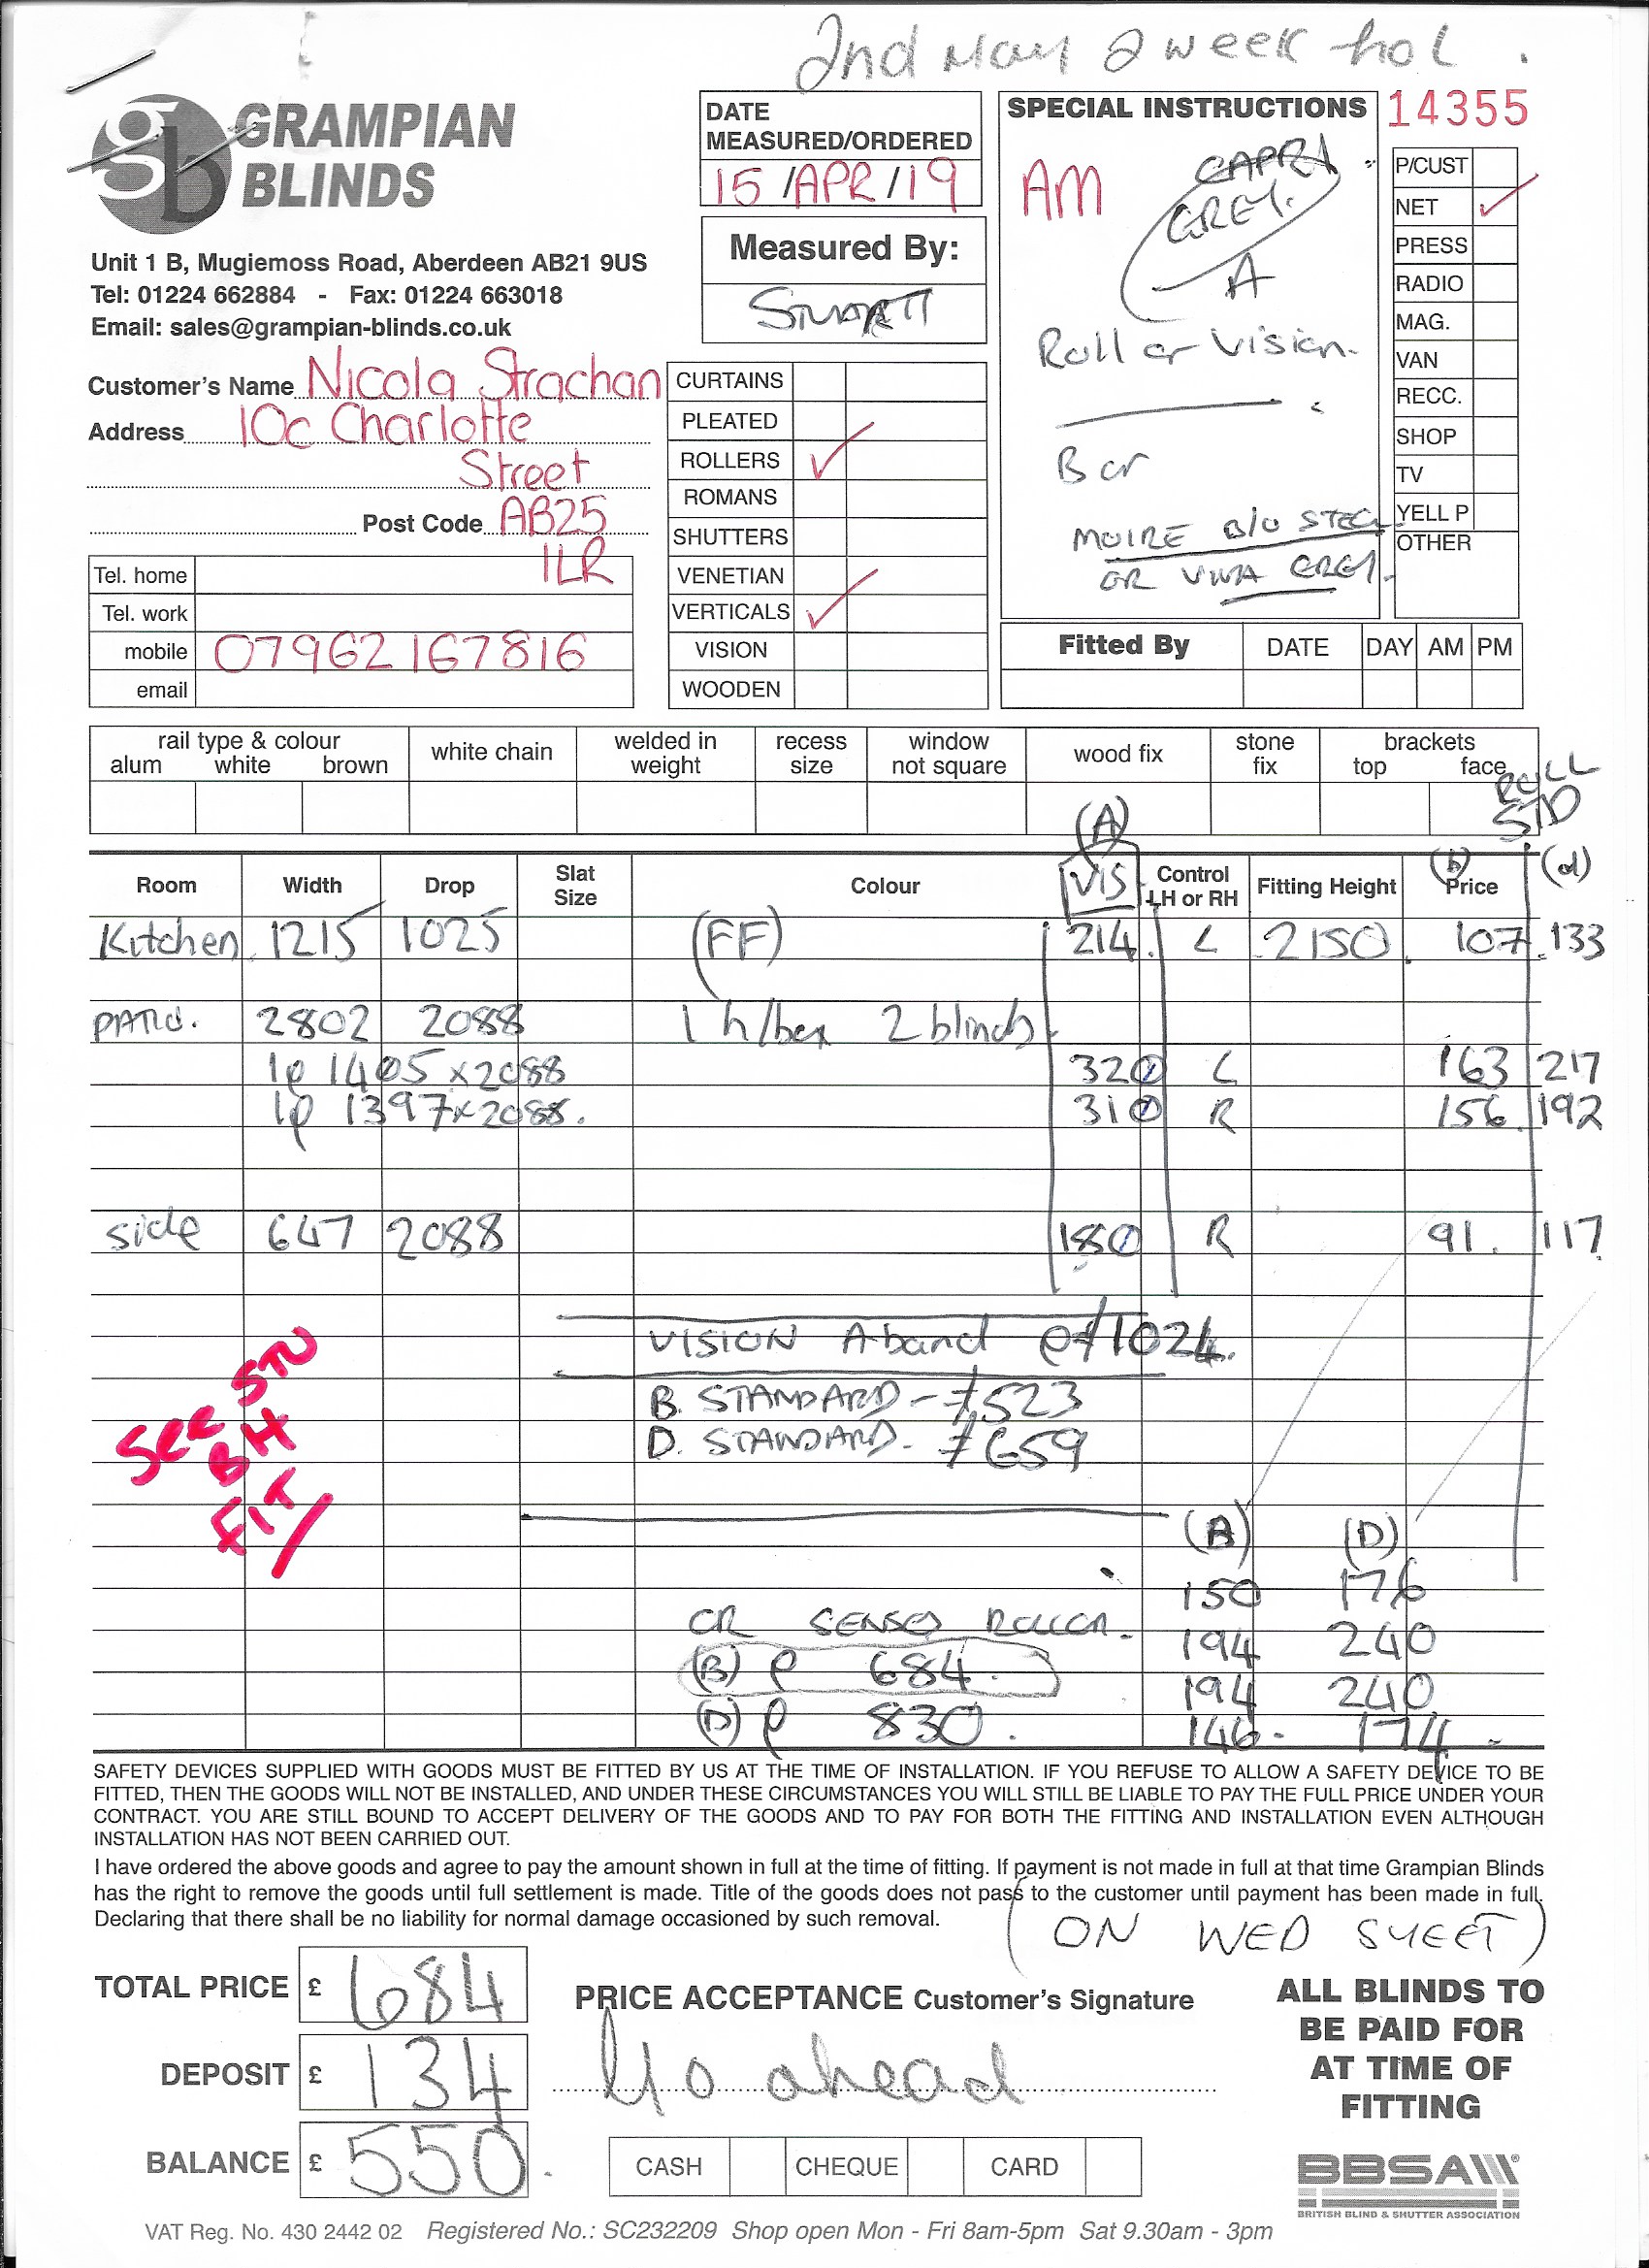 2nd May 2 week hol.
gb GRAMPIAN BLINDS
Unit 1 B, Mugiemoss Road, Aberdeen AB21 9US
Tel: 01224 662884 - Fax: 01224 663018
Email: sales@grampian-blinds.co.uk
Customer's Name Nicola Strachan
Address 10c Charlotte
Street
Post Code AB25
1LR
Tel. home
Tel. work
mobile 07962 167816
email
DATE
MEASURED/ORDERED
15/APR/19
Measured By:
STUART
CURTAINS
PLEATED
ROLLERS ✓
ROMANS
SHUTTERS
VENETIAN
VERTICALS ✓
VISION
WOODEN
SPECIAL INSTRUCTIONS
AM
CAPRI
GREY.
A
Roll or Vision.
B or
MOIRE B/O STEEL
OR VIVA GREY.
14355
P/CUST
NET ✓
PRESS
RADIO
MAG.
VAN
RECC.
SHOP
TV
YELL P
OTHER
Fitted By DATE DAY AM PM
rail type & colour
alum white brown
white chain
welded in weight
recess size
window not square
wood fix
stone fix
brackets
top face
ROLL
STD
(A)
Room Width Drop Slat Size Colour VIS Control LH or RH Fitting Height (b) Price (d)
Kitchen 1215 1025 (FF) 214 L 2150 107 133
PATIO. 2802 2088 1 h/box 2 blinds
1@ 1405 x 2088 320 L 163 217
1@ 1397 x 2088. 310 R 156 192
side 647 2088 180 R 91. 117
VISION A band @ £1024.
B. STANDARD - £523
D. STANDARD. £659
See STU
BH
FIT
(B) (D)
150 176
OR SENSES ROLLER. 194 240
(B) @ 684. 194 240
(D) @ 830. 146. 174
SAFETY DEVICES SUPPLIED WITH GOODS MUST BE FITTED BY US AT THE TIME OF INSTALLATION. IF YOU REFUSE TO ALLOW A SAFETY DEVICE TO BE
FITTED, THEN THE GOODS WILL NOT BE INSTALLED, AND UNDER THESE CIRCUMSTANCES YOU WILL STILL BE LIABLE TO PAY THE FULL PRICE UNDER YOUR
CONTRACT. YOU ARE STILL BOUND TO ACCEPT DELIVERY OF THE GOODS AND TO PAY FOR BOTH THE FITTING AND INSTALLATION EVEN ALTHOUGH
INSTALLATION HAS NOT BEEN CARRIED OUT.
I have ordered the above goods and agree to pay the amount shown in full at the time of fitting. If payment is not made in full at that time Grampian Blinds
has the right to remove the goods until full settlement is made. Title of the goods does not pass to the customer until payment has been made in full.
Declaring that there shall be no liability for normal damage occasioned by such removal.
(ON WED SHEET)
TOTAL PRICE £ 684
DEPOSIT £ 134
BALANCE £ 550.
PRICE ACCEPTANCE Customer's Signature
Go ahead
CASH CHEQUE CARD
ALL BLINDS TO
BE PAID FOR
AT TIME OF
FITTING
BBSA
BRITISH BLIND & SHUTTER ASSOCIATION
VAT Reg. No. 430 2442 02 Registered No.: SC232209 Shop open Mon - Fri 8am-5pm Sat 9.30am - 3pm